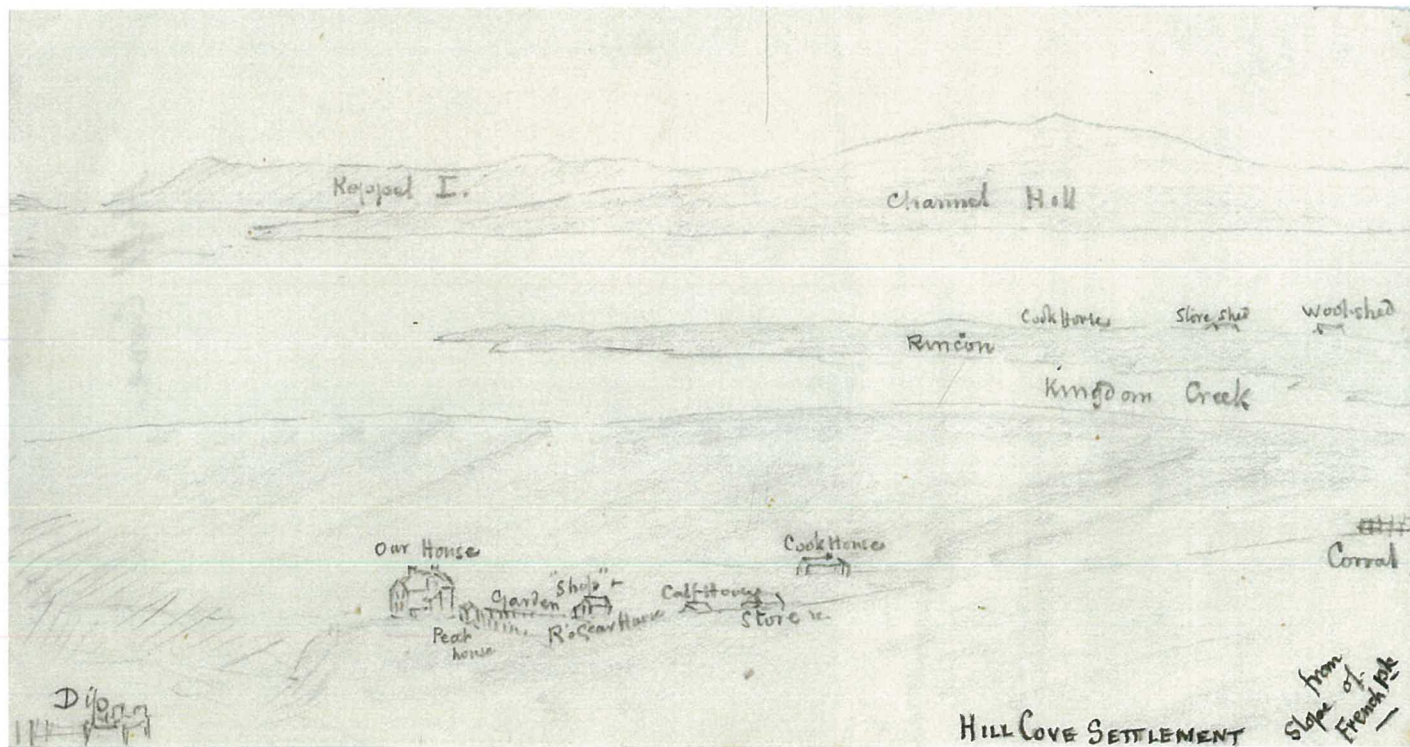 Keppel I.
Channel Hill
Cook House
Store shed
Wool-shed
Rincon
Kingdom Creek
Our House
Cook House
Corral
Garden
"Shop" +
Calf-House
Peat
house
Store &c.
Dip
HILL COVE SETTLEMENT
from
Slope of
French Pk